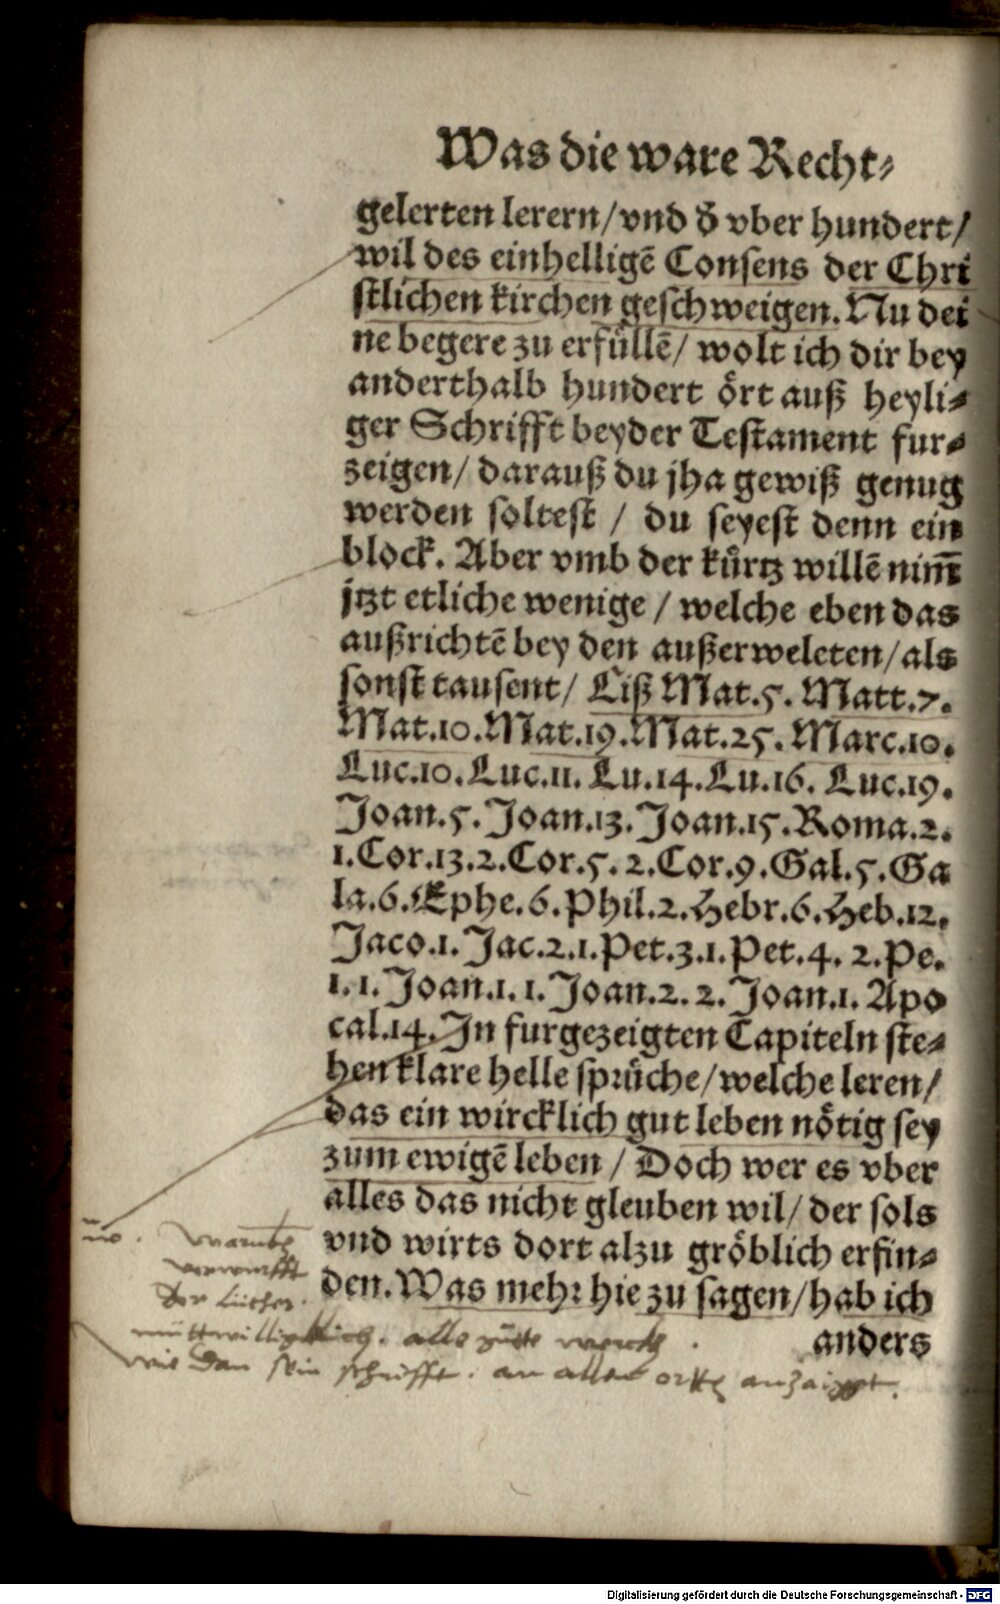 Was die ware Recht⸗
gelerten lerern/vnd d̄ vber hundert/
wil des einhelligē Consens der Chri
stlichen kirchen geschweigen. Nu dei
ne begere zu erfüllē/ wolt ich dir bey
anderthalb hundert ört auß heyli⸗
ger Schrifft beyder Testament fur⸗
zeigen/ darauß du jha gewiß genug
werden soltest / du seyest denn ein
block. Aber vmb der kürtz willē nim̄
jtzt etliche wenige / welche eben das
außrichtē bey den außerweleten/als
sonst tausent/ Liß Mat.5. Matt.7.
Mat.10.Mat.19.Mat.25. Marc.10.
Luc.10.Luc.11. Lu.14.Lu.16. Luc.19.
Joan.5. Joan.13. Joan.15.Roma.2.
1.Cor.13.2.Cor.5. 2.Cor.9.Gal.5.Ga
la.6.Ephe.6.Phil.2.Hebr.6.Heb.12.
Jaco.1. Jac.2.1.Pet.3.1.Pet.4. 2.Pe.
1.1. Joan.1.1. Joan.2.2. Joan.1. Apo
cal.14. In furgezeigten Capiteln ste⸗
hen klare helle sprüche/welche leren/
das ein wircklich gut leben nötig sey
zum ewigē leben / Doch wer es vber
alles das nicht gleuben wil/ der sols
vnd wirts dort alzu gröblich erfin⸗
den. Was mehr hie zu sagen/hab ich
anders
verwurfft
der Luther.
müttwilligklich. alle gütte werck.
wie dan sein schrifft. an allen ortten anzaigt.
Digitalisierung gefördert durch die Deutsche Forschungsgemeinschaft - DFG